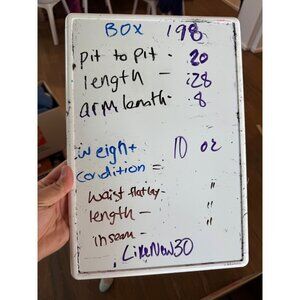 BOX 198
pit to pit - 20
length - 28
arm length - 8
weight 10 oz
condition =
waist flat lay - "
length - "
inseam - "
LikeNew30